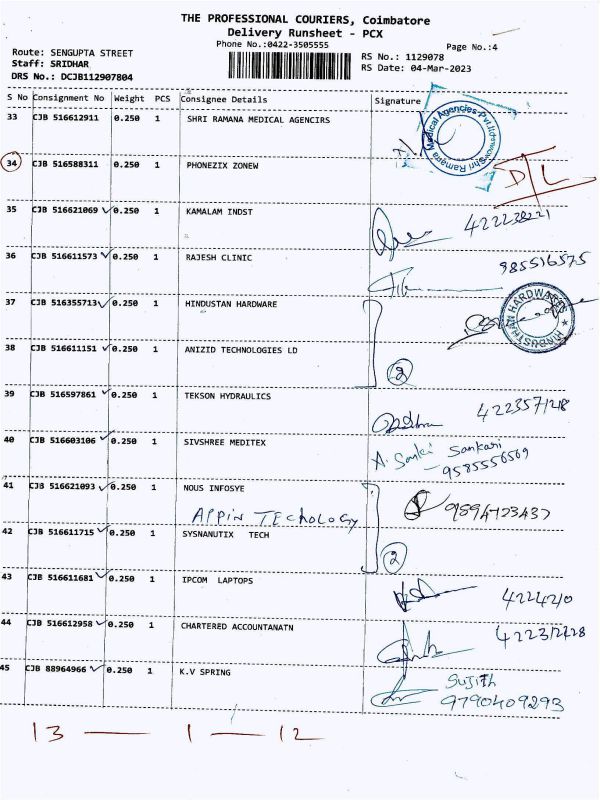 THE PROFESSIONAL COURIERS, Coimbatore
Delivery Runsheet - PCX
Phone No.:0422-3505555
Page No.:4
Route: SENGUPTA STREET
Staff: SRIDHAR
DRS No.: DCJB112907804
RS No.: 1129078
RS Date: 04-Mar-2023
S No Consignment No Weight PCS Consignee Details Signature
33 CJB 516612911 0.250 1 SHRI RAMANA MEDICAL AGENCIRS
Shri Ramana Medical Agencies Pvt.ltd
34 CJB 516588311 0.250 1 PHONEZIX ZONEW D/L
35 CJB 516621069 0.250 1 KAMALAM INDST
36 CJB 516611573 0.250 1 RAJESH CLINIC 985516575
37 CJB 516355713 0.250 1 HINDUSTAN HARDWARE
HINDUSTHAN HARDWARES
38 CJB 516611151 0.250 1 ANIZID TECHNOLOGIES LD 2
39 CJB 516597861 0.250 1 TEKSON HYDRAULICS
40 CJB 516603106 0.250 1 SIVSHREE MEDITEX A. Sanki Sankari
9585556569
41 CJB 516621093 0.250 1 NOUS INFOSYE
APPIN TEChOLOGY
42 CJB 516611715 0.250 1 SYSNANUTIX TECH 2
43 CJB 516611681 0.250 1 IPCOM LAPTOPS
44 CJB 516612958 0.250 1 CHARTERED ACCOUNTANATN
45 CJB 88964966 0.250 1 K.V SPRING SUJITH
9790409293
13 — 1 — 12